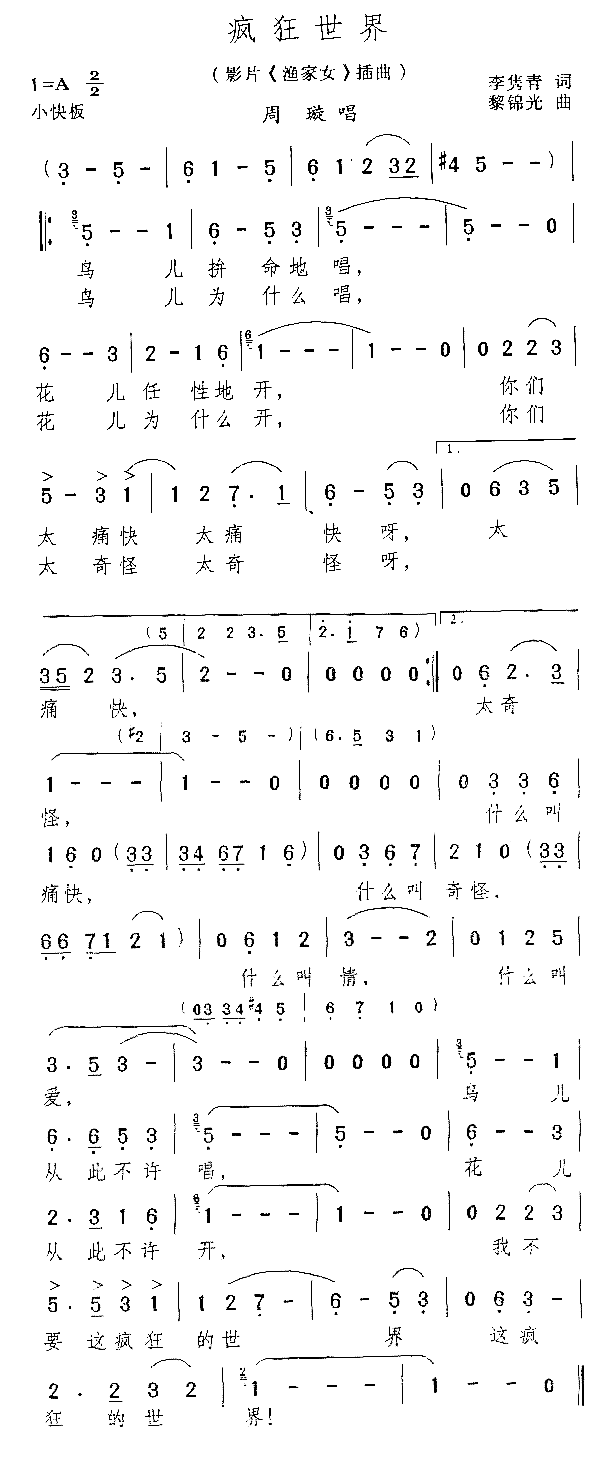 疯狂世界
(影片《渔家女》插曲)
1=A 2/2
李隽青 词
小快板
黎锦光 曲
周璇唱
(3 - 5 - | 6 1 - 5 | 6 1 2 32 | #4 5 - - )|
‖: 5 - - 1 | 6 - 5 3 | 5 - - - | 5 - - 0 |
鸟 儿拚 命地唱,
鸟 儿为 什么唱,
6 - - 3 | 2 - 1 6 | 1 - - - | 1 - - 0 | 0 2 2 3 |
花 儿任 性地开, 你们
花 儿为 什么开, 你们
> > >
5 - 3 1 | 1 2 7 . 1 | 6 - 5 3 | 1. 0 6 3 5 |
太 痛快 太痛 快呀, 太
太 奇怪 太奇 怪呀,
(5 | 2 2 3 . 5 | 2 . 1 7 6 )
35 2 3 . 5 | 2 - - 0 | 0 0 0 0 :‖ 2. 0 6 2 . 3 |
痛 快, 太奇
(#2 | 3 - 5 - )|(6 . 5 3 1 )
1 - - - | 1 - - 0 | 0 0 0 0 | 0 3 3 6 |
怪, 什么叫
1 6 0 (33 | 34 67 1 6 )| 0 3 6 7 | 2 1 0 (33 |
痛快, 什么叫 奇怪.
66 71 2 1 )| 0 6 1 2 | 3 - - 2 | 0 1 2 5 |
什么叫 情, 什么叫
(03 34 #4 5 | 6 7 1 0 )
3 . 5 3 - | 3 - - 0 | 0 0 0 0 | 5 - - 1 |
爱, 鸟 儿
6 . 6 5 3 | 5 - - - | 5 - - 0 | 6 - - 3 |
从 此不许 唱, 花 儿
2 . 3 1 6 | 1 - - - | 1 - - 0 | 0 2 2 3 |
从 此不许 开, 我不
> > > >
5 . 5 3 1 | 1 2 7 - | 6 - 5 3 | 0 6 3 - |
要 这疯狂 的世 界 这疯
2 . 2 3 2 | 1 - - - | 1 - - 0 ‖
狂 的世 界!